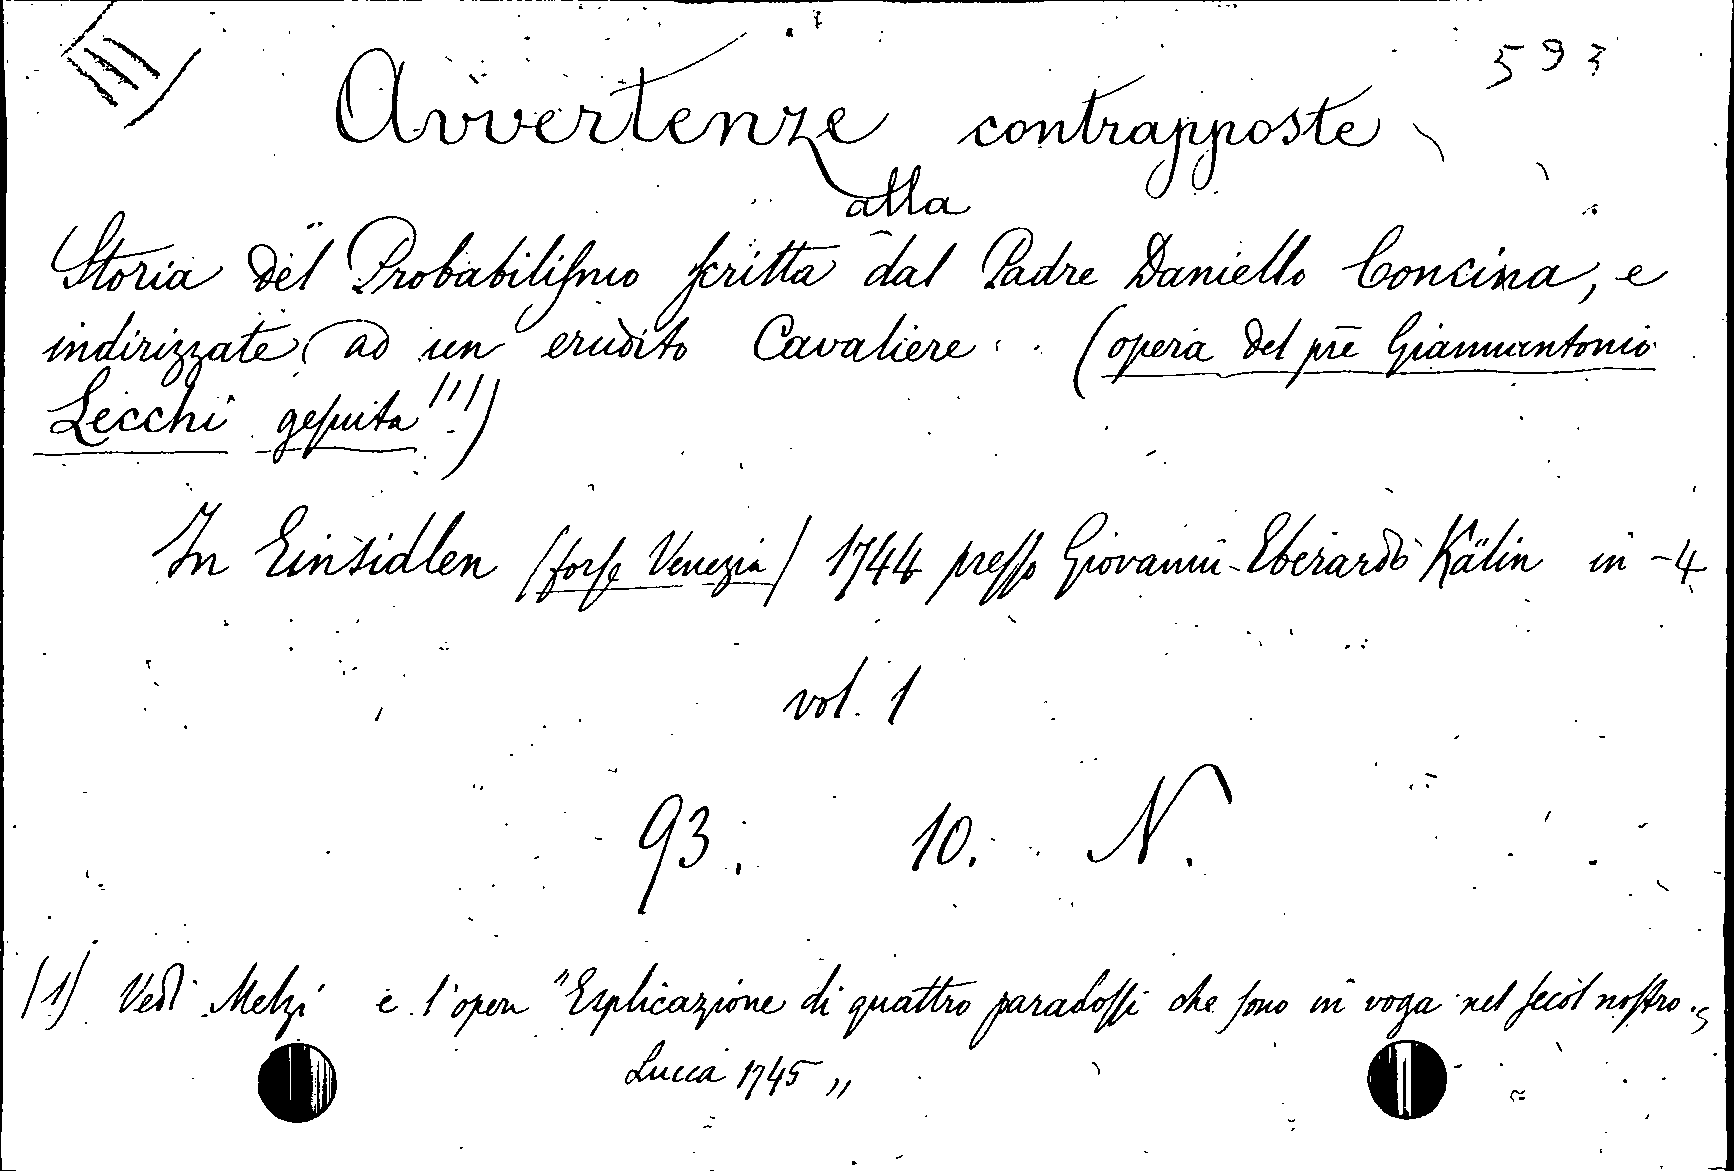 593
Avvertenze contrapposte
alla
Storia del Probabiliſmo ſcritta dal Padre Daniello Concina, e
indirizzate ad un erudito Cavaliere (opera del pre Giannantonio
Lecchi geſuita !!!)
In Einsidlen (forſe Venezia) 1744 preſſo Giovanni-Eberardo Kälin in -4
vol. 1
93. 10. N.
(1) Vedi Melzi e l'opera "Esplicazione di quattro paradoſſi che ſono in voga nel ſecol noſtro.,
Lucca 1745 „